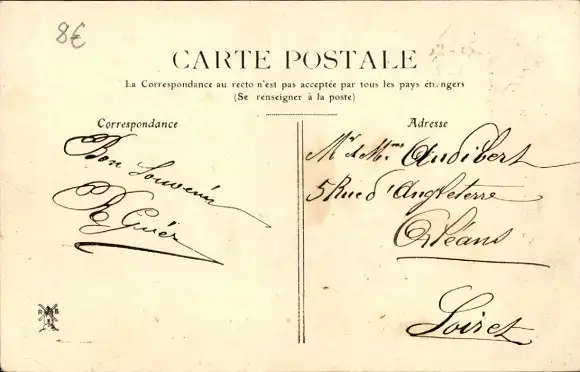 8€
CARTE POSTALE
La Correspondance au recto n'est pas acceptée par tous les pays étrangers
(Se renseigner à la poste)
Correspondance
Bon Souvenir
R Guér
Adresse
Mr & Mme Audibert
5 Rue d'Angleterre
Orléans
Loiret